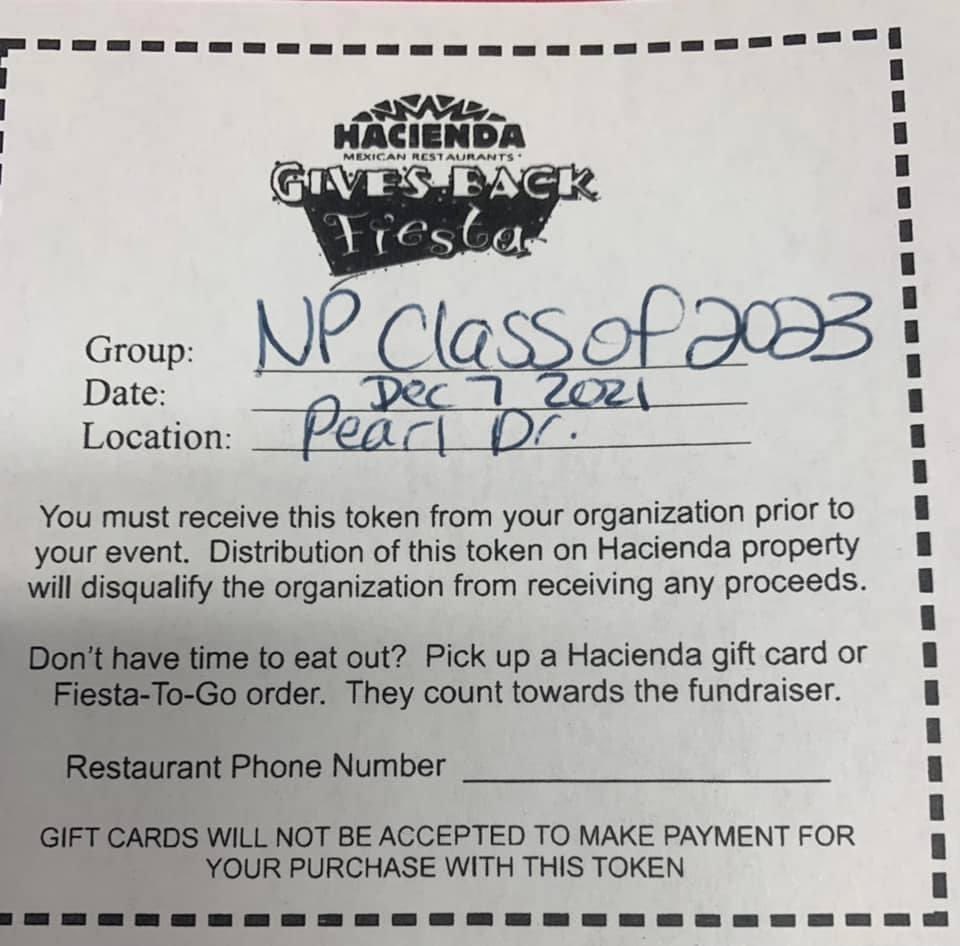 HACIENDA
MEXICAN RESTAURANTS
GIVES BACK
Fiesta
Group: NP Class of 2023
Date: Dec 7 2021
Location: Pearl Dr.
You must receive this token from your organization prior to
your event. Distribution of this token on Hacienda property
will disqualify the organization from receiving any proceeds.
Don't have time to eat out? Pick up a Hacienda gift card or
Fiesta-To-Go order. They count towards the fundraiser.
Restaurant Phone Number
GIFT CARDS WILL NOT BE ACCEPTED TO MAKE PAYMENT FOR
YOUR PURCHASE WITH THIS TOKEN